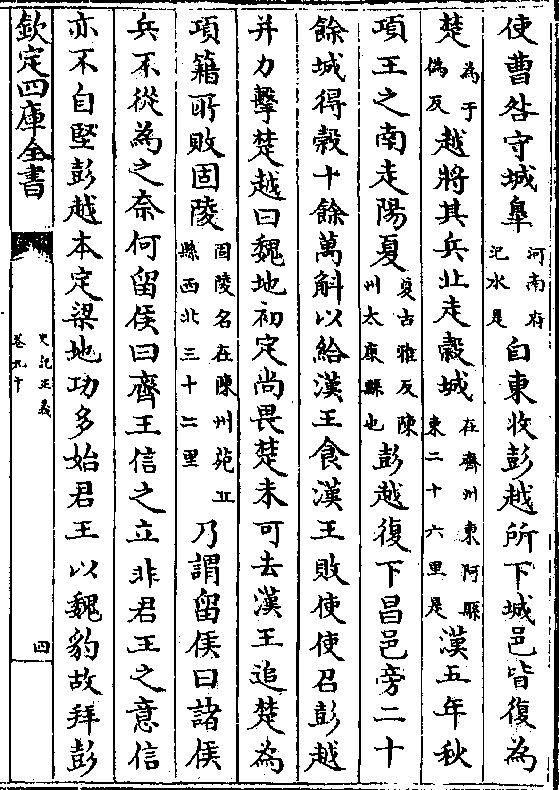 使曹咎守城臯河南府汜水是自東收彭越所下城邑皆復為
楚為于偽反越將其兵北走穀城在齊州東阿縣東二十六里是漢五年秋
項王之南走陽夏夏古雅反陳州太康縣也彭越復下昌邑旁二十
餘城得穀十餘萬斛以給漢王食漢王敗使使召彭越
并力擊楚越曰魏地初定尚畏楚未可去漢王追楚為
項籍所敗固陵固陵名在陳州苑丘縣西北三十二里乃謂留侯曰諸侯
兵不從為之奈何留侯曰齊王信之立非君王之意信
亦不自堅彭越本定梁地功多始君王以魏豹故拜彭
欽定四庫全書
史記正義
卷九十
四